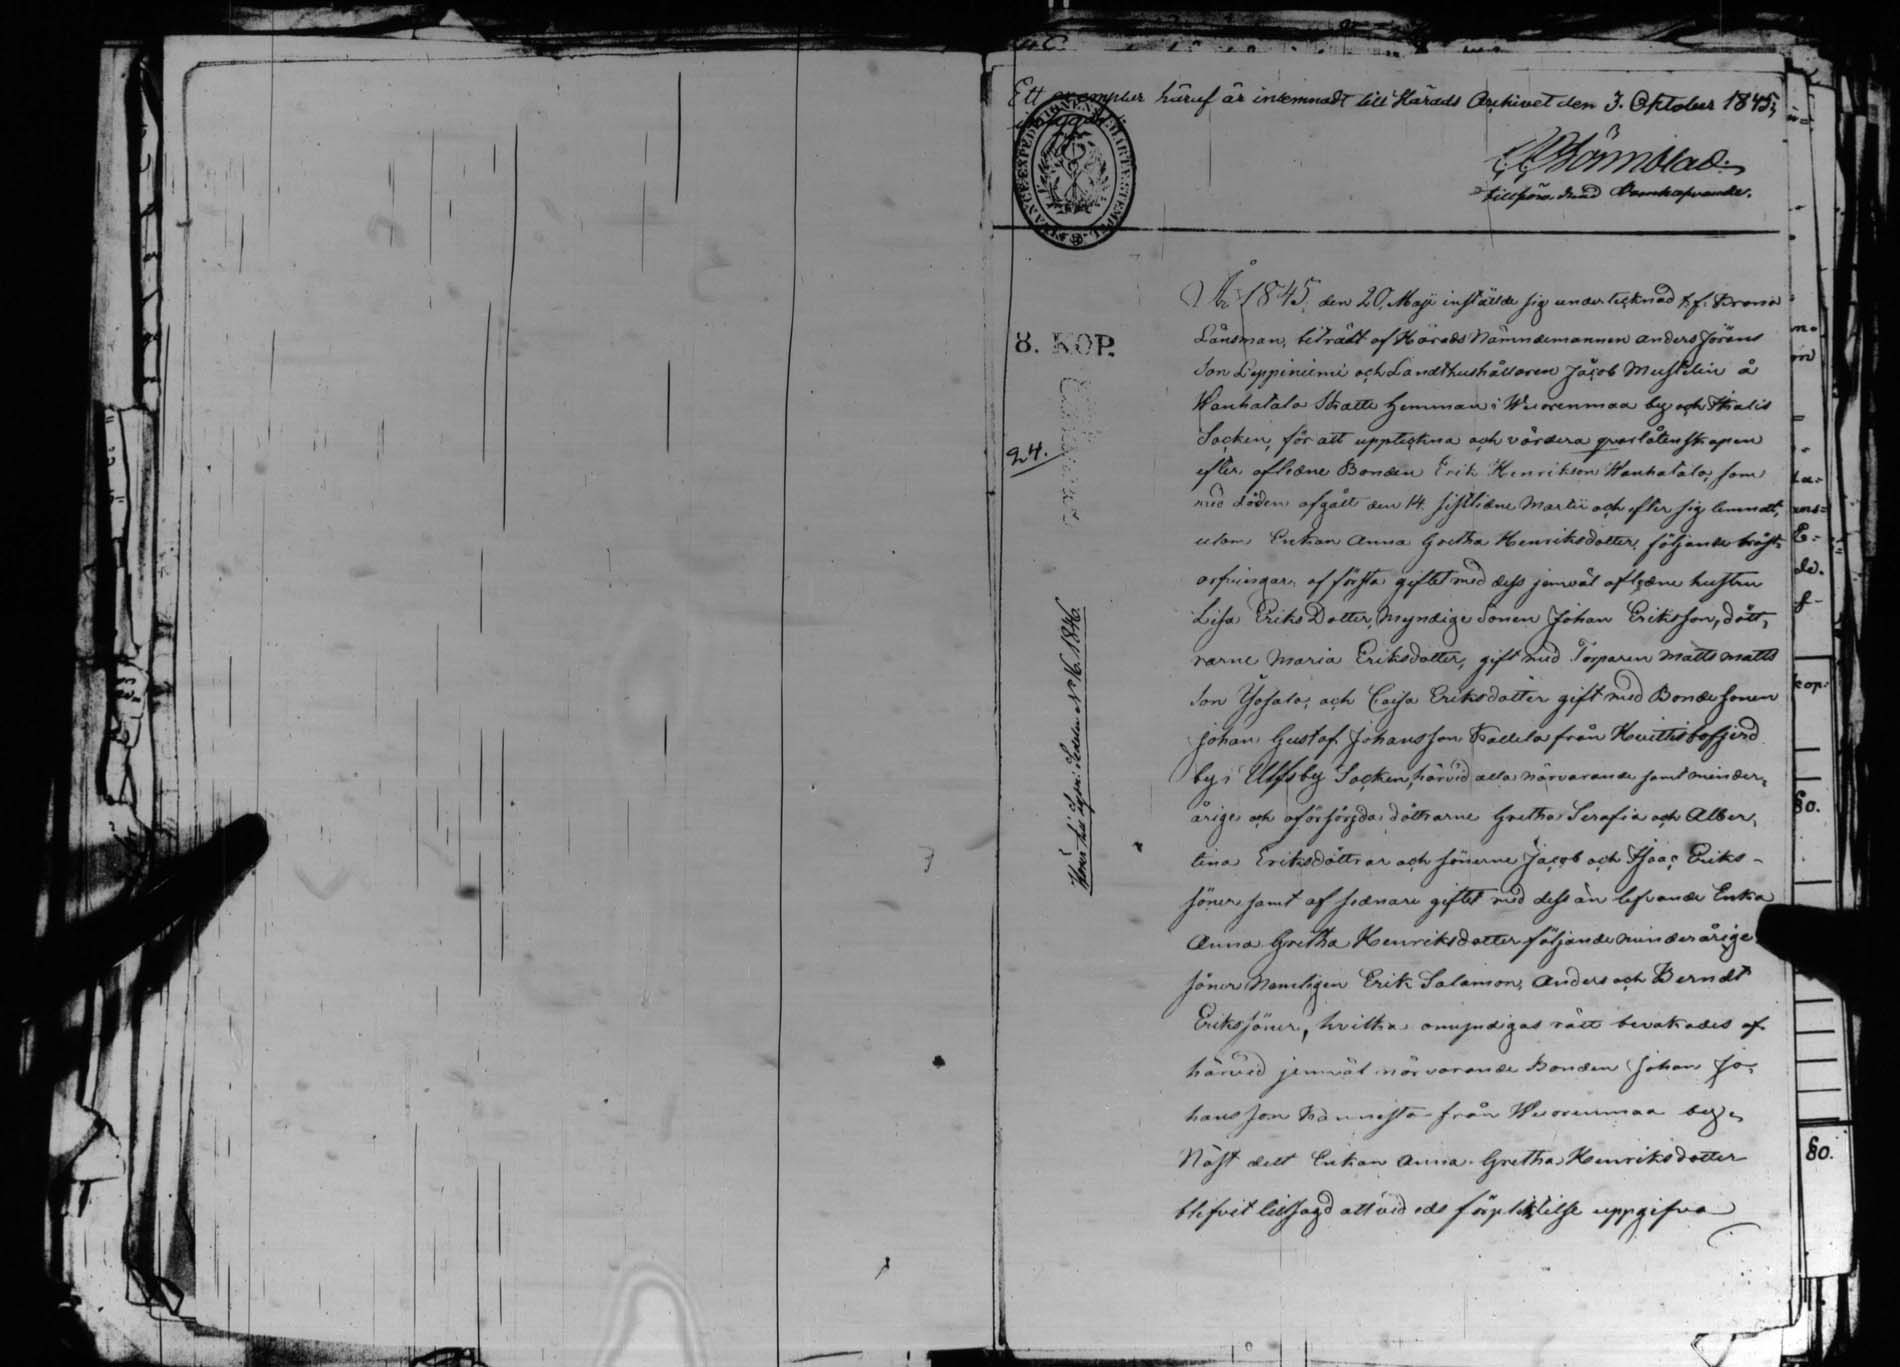 Ett exemplar häruf är inlemnadt till Härads Archivet den 3. Oktober 1845;
tillförordnad
8. KOP.
24.
Hörer till Legni: Sedeln No 16. 1846.
År 1845, den 20. Maji instälde sig undertecknad t.f. Krono
Länsman, biträdt af Härads Nämndemannen Anders Jörans
Son Leppiniemi och Landthushållaren Jacob Mustelin å
Wanhatalo Skatte hemman i Wuorenmaa by och Kjulo
Socken, för att uppteckna och värdera qvarlåtenskapen
efter aflidne Bonden Erik Henrikson Wanhatalo, som
med döden afgått den 14. sistlidne Martii och efter sig lemnatt,
utom Enkan Anna Gretha Henriksdotter, följande bröst-
arfvingar, af första giftet med dess jemväl aflidne hustru
Lisa Eriks Dotter, Myndige Sonen Johan Eriksson, dött-
rarne Maria Eriksdotter, gift med Torparen Matts Matts
Son Yösalo, och Caisa Eriksdotter gift med Bondesonen
Johan Gustaf Johansson från
by i Ulfsby Socken, härvid alla närvarande samt minder-
årige och oförsörjda döttrarne Gretha Serafia och Alber-
tina Eriksdöttrar och sönerne Jacob och Isaac Eriks-
söner samt af sednare giftet med dess än lefvande Enka
Anna Gretha Henriksdotter följande minderårige
söner Nemligen Erik Salamon, Anders och Berndt
Erikssöner, hvilka omyndigas rätt bevakades af
härvid jemväl närvarande Bonden Johan Jo-
hansson från Wuorenmaa by.
Näst dett Enkan Anna Gretha Henriksdotter
blifvit tillsagd att vid eds förpliktelse uppgifva
§0.
§0.
kop.